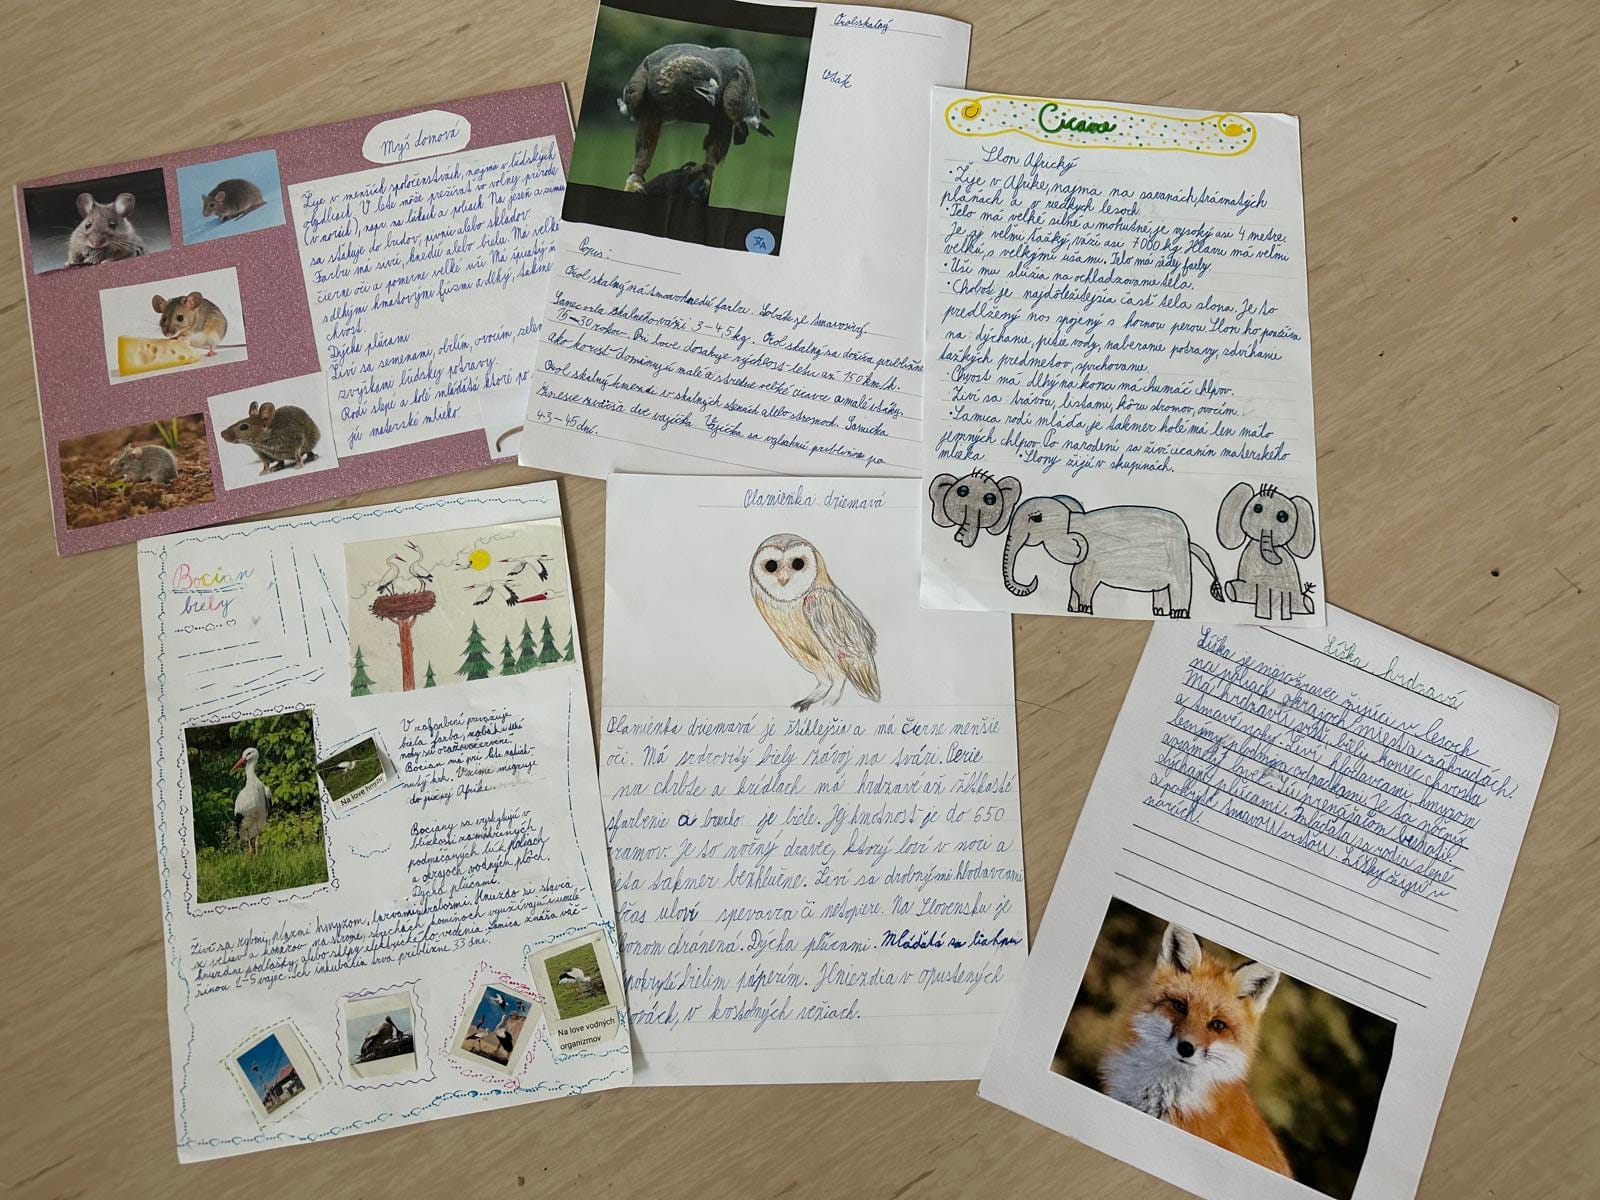 Myš domová
Žije v menších spoločenstvách, najmä v ľudských
obydliach. V lete môže prežívať vo voľnej prírode
(v norách), napr. na lúkach a poliach. Na jeseň a zimu
sa sťahuje do budov, pivníc alebo skladov.
Farbu má sivú, hnedú alebo bielu. Má veľké
čierne oči a pomerne veľké uši. Má špicatý
s dlhými hmatovými fúzmi a dlhý, takmer
chvost.
Dýcha pľúcami
Živí sa semenami, obilím, ovocím,
zvyškami ľudskej potravy.
Rodí slepé a holé mláďatá ktoré po
materské mlieko.
Orol skalný
Vták
Opis:
Orol skalný má tmavohnedú farbu. Zobák je tmavosivý
Samec orla skalného váži 3-4,5 kg. Orol skalný sa dožíva približne
15-30 rokov. Pri love dosahuje rýchlosť letu až 150 km/h.
ako korisť dominujú malé a stredne veľké cicavce a malé vtáky.
Orol skalný hniezdi v skalných stenách alebo stromoch. Samička
znesie zväčša dve vajíčka. Vajíčka sa vyliahnu približne po
43-45 dní.
Cicavce
Slon Africký
• Žije v Afrike, najmä na savanách, trávnatých
pláňach a v riedkych lesoch.
• Telo má veľké silné a mohutné, je vysoký asi 4 metre.
Je aj veľmi ťažký, váži asi 7000 kg. Hlavu má veľmi
veľkú, s veľkými ušami. Telo má šedej farby
• Uši mu slúžia na ochladzovanie tela.
• Chobot je najdôležitejšia časť tela slona. Je to
predĺžený nos spojený s hornou perou. Slon ho používa
na: dýchanie, pitie vody, naberanie potravy, zdvíhanie
ťažkých predmetov, sprchovanie.
• Chvost má dlhý na konci má chumáč chlpov.
• Živí sa: trávou, listami, kôrou stromov, ovocím.
• Samica rodí mláďa, je takmer holé má len málo
jemných chlpov. Po narodení sa živí cicaním materského
mlieka. • Slony žijú v skupinách.
Bocian
biely
V zafarbení prevažuje
biela farba, zobák a dlhé
nohy sú oranžovočervené.
Bocian má pri lete natiah-
nutý krk. V zime migruje
do južnej Afriky.
Na love hmyzu
Bociany sa vyskytujú v
blízkosti zamokrených
podmáčaných lúk, poliach
a okrajoch vodných plôch.
Dýcha pľúcami.
Živí sa rybami, plazmi hmyzom, larvami, hniezdo si stavia
z vetiev a konárov na strome, strechách komínoch využívajú i umelé
hniezdne podložky, alebo stĺpy elektrického vedenia. Samica znáša väč-
šinou 2-5 vajec. Ich inkubácia trva približne 33 dní.
Na love vodných
organizmov
Plamienka driemavá
Plamienka driemavá je štíhlejšia a má čierne menšie
oči. Má srdcovitý biely závoj na tvári. Perie
na chrbte a krídlach má hrdzavé až žltkasté
sfarbenie a brucho je biele. Jej hmotnosť je do 650
gramov. Je to nočný dravec, ktorý loví v noci a
lieta takmer bezhlučne. Živí sa drobnými hlodavcami
občas uloví spevavca či netopiere. Na Slovensku je
zákonom chránená. Dýcha pľúcami. Mláďatá sa liahnu
pokryté bielim páperím. Hniezdia v opustených
v kostolných vežiach.
Líška hrdzavá
Líška je mäsožravec žijúci v lesoch
na poliach okrajoch miest a záhradách.
Má hrdzavú srsť, biely koniec chvosta
a tmavé nohy. Živí hlodavcami hmyzom
lesnými plodmi a odpadkami. Je to nočný
samotný lovec. Je prenášačom besnoty.
Dýcha pľúcami. Mláďatá sa rodia slepé
a pokryté tmavou srsťou. Líšky žijú v
norách.